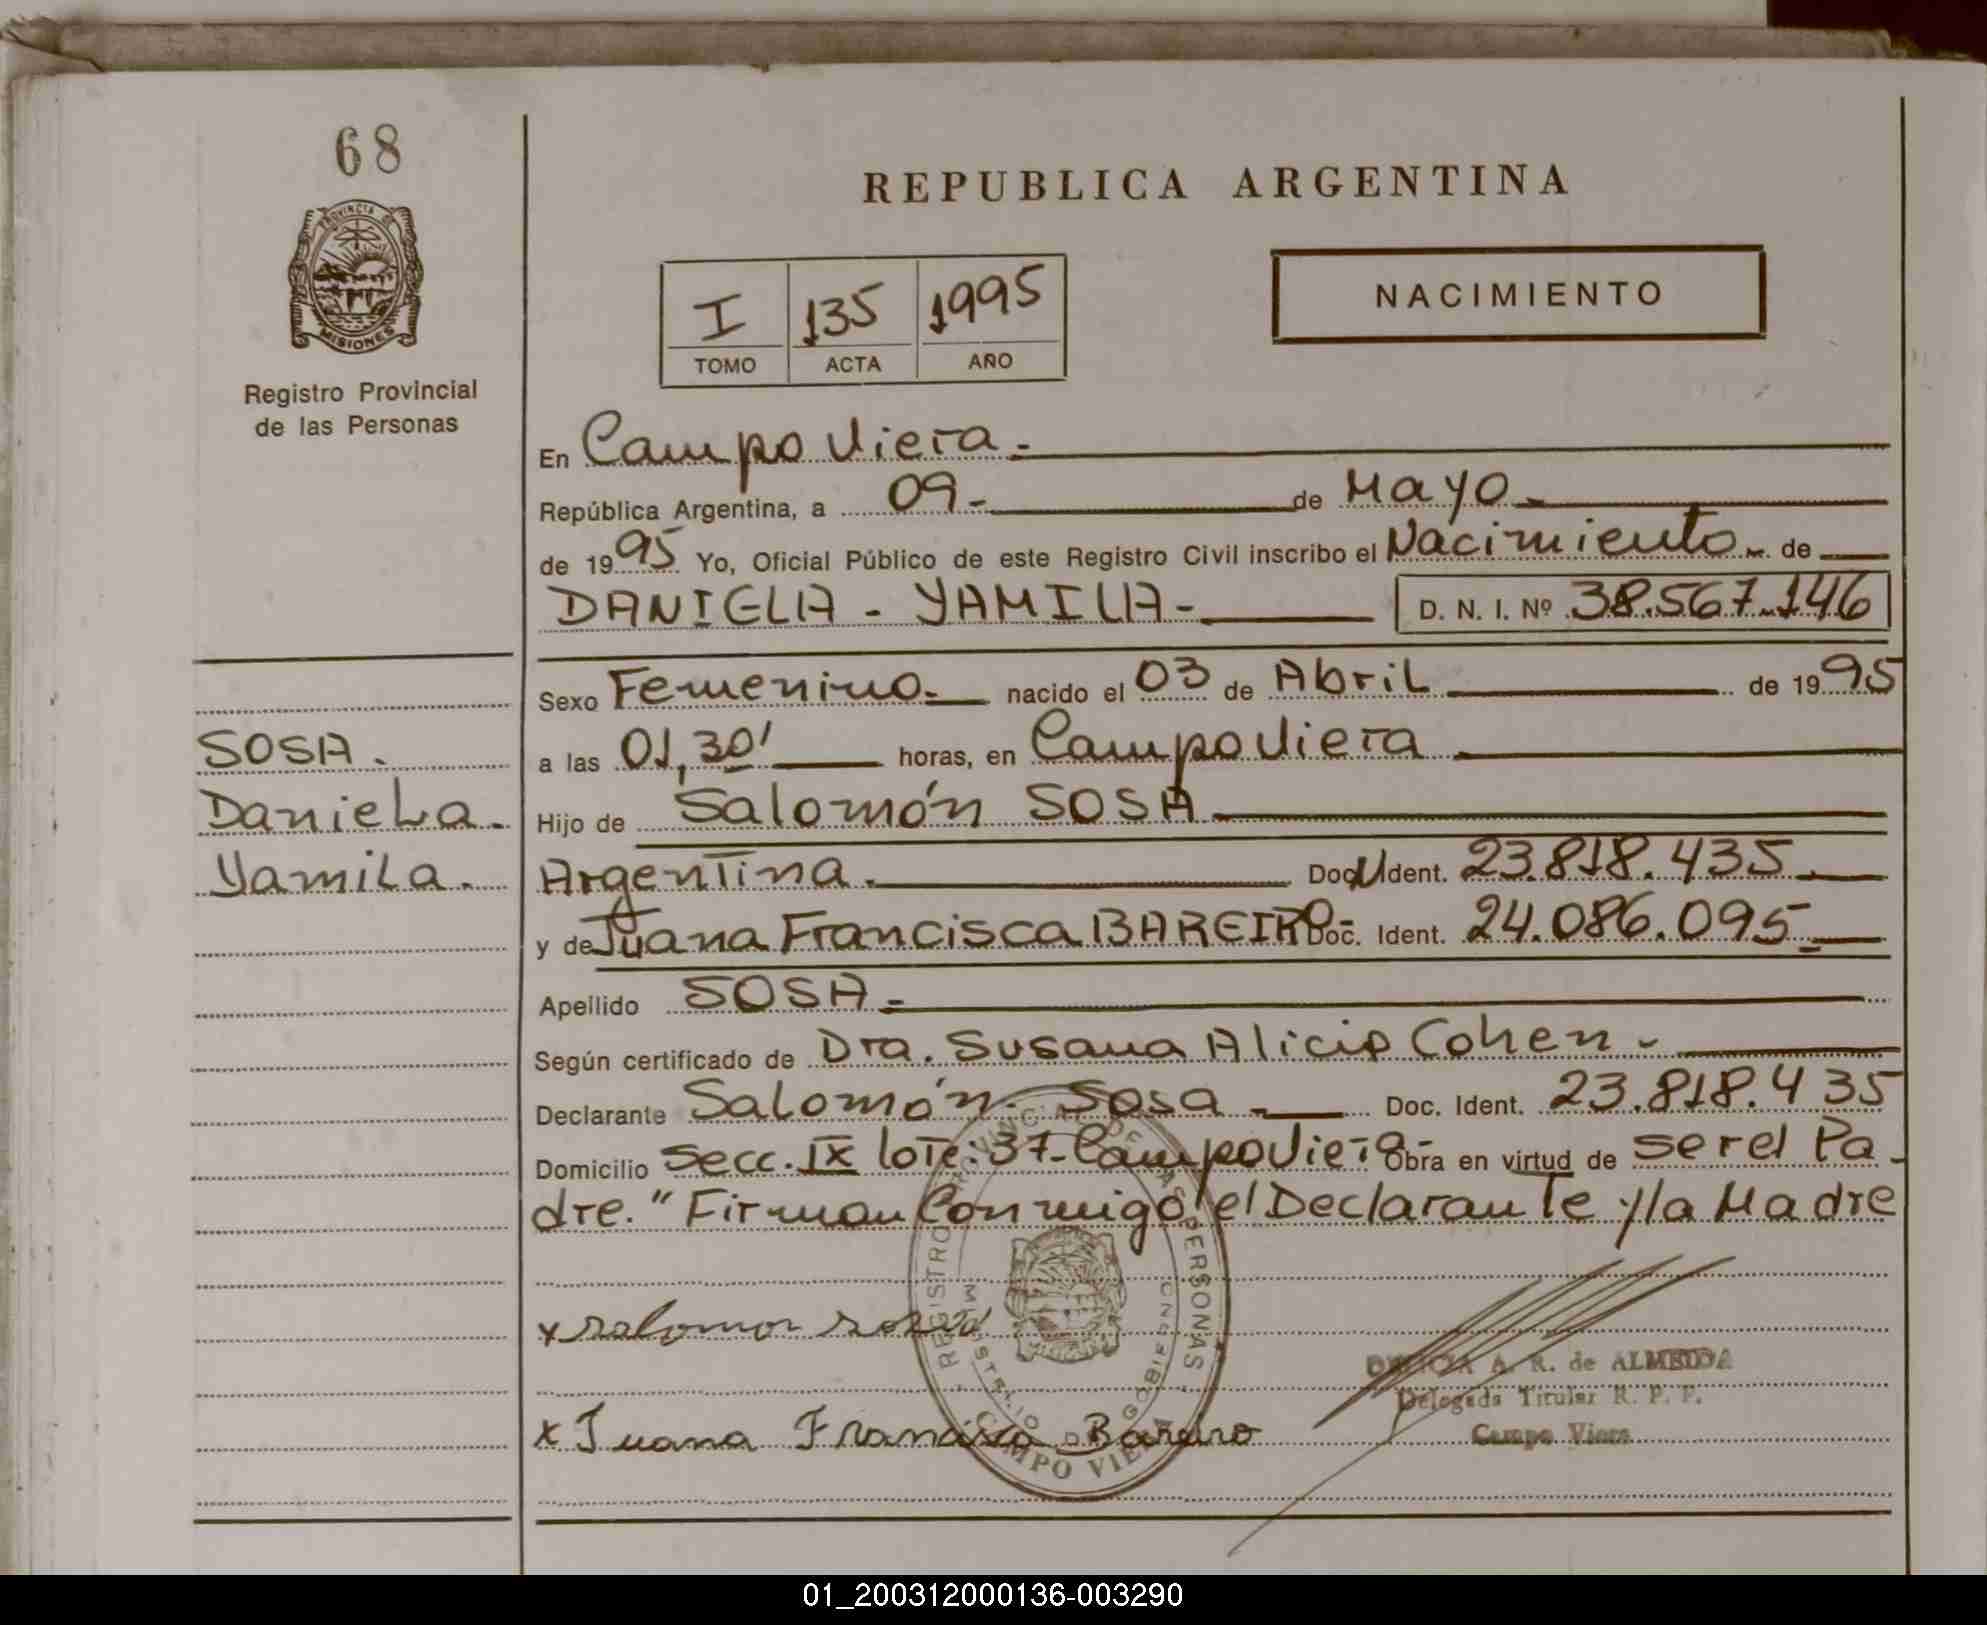 68
PROVINCIA DE
MISIONES
Registro Provincial
de las Personas
REPUBLICA ARGENTINA
I 135 1995
TOMO ACTA AÑO
NACIMIENTO
En Campo Viera.-
República Argentina, a 09- de Mayo-
de 1995 Yo, Oficial Público de este Registro Civil inscribo el Nacimiento - de
DANIELA - YAMILA- D. N. I. Nº 38.567.146
Sexo Femenino.- nacido el 03 de Abril de 1995
a las 01,30' horas, en Campo Viera
Hijo de Salomón SOSA
Argentina. Doc. Ident. 23.818.435
y de Juana Francisca BAREIRO- Doc. Ident. 24.086.095-
Apellido SOSA-
Según certificado de Dra. Susana Alicia Cohen -
Declarante Salomón Sosa - Doc. Ident. 23.818.435
Domicilio Secc. IX lote: 37- Campo Viera- Obra en virtud de ser el Pa-
dre." Firman Conmigo el Declarante y la Madre
SOSA.
Daniela.
Yamila.
x salomon sosa
x Juana Francisca Bareiro
REGISTRO PROVINCIAL DE LAS PERSONAS
MINISTERIO DE GOBIERNO
CAMPO VIERA
A. R. de ALMEIDA
Delegada Titular R. P. P.
Campo Viera
01_200312000136-003290